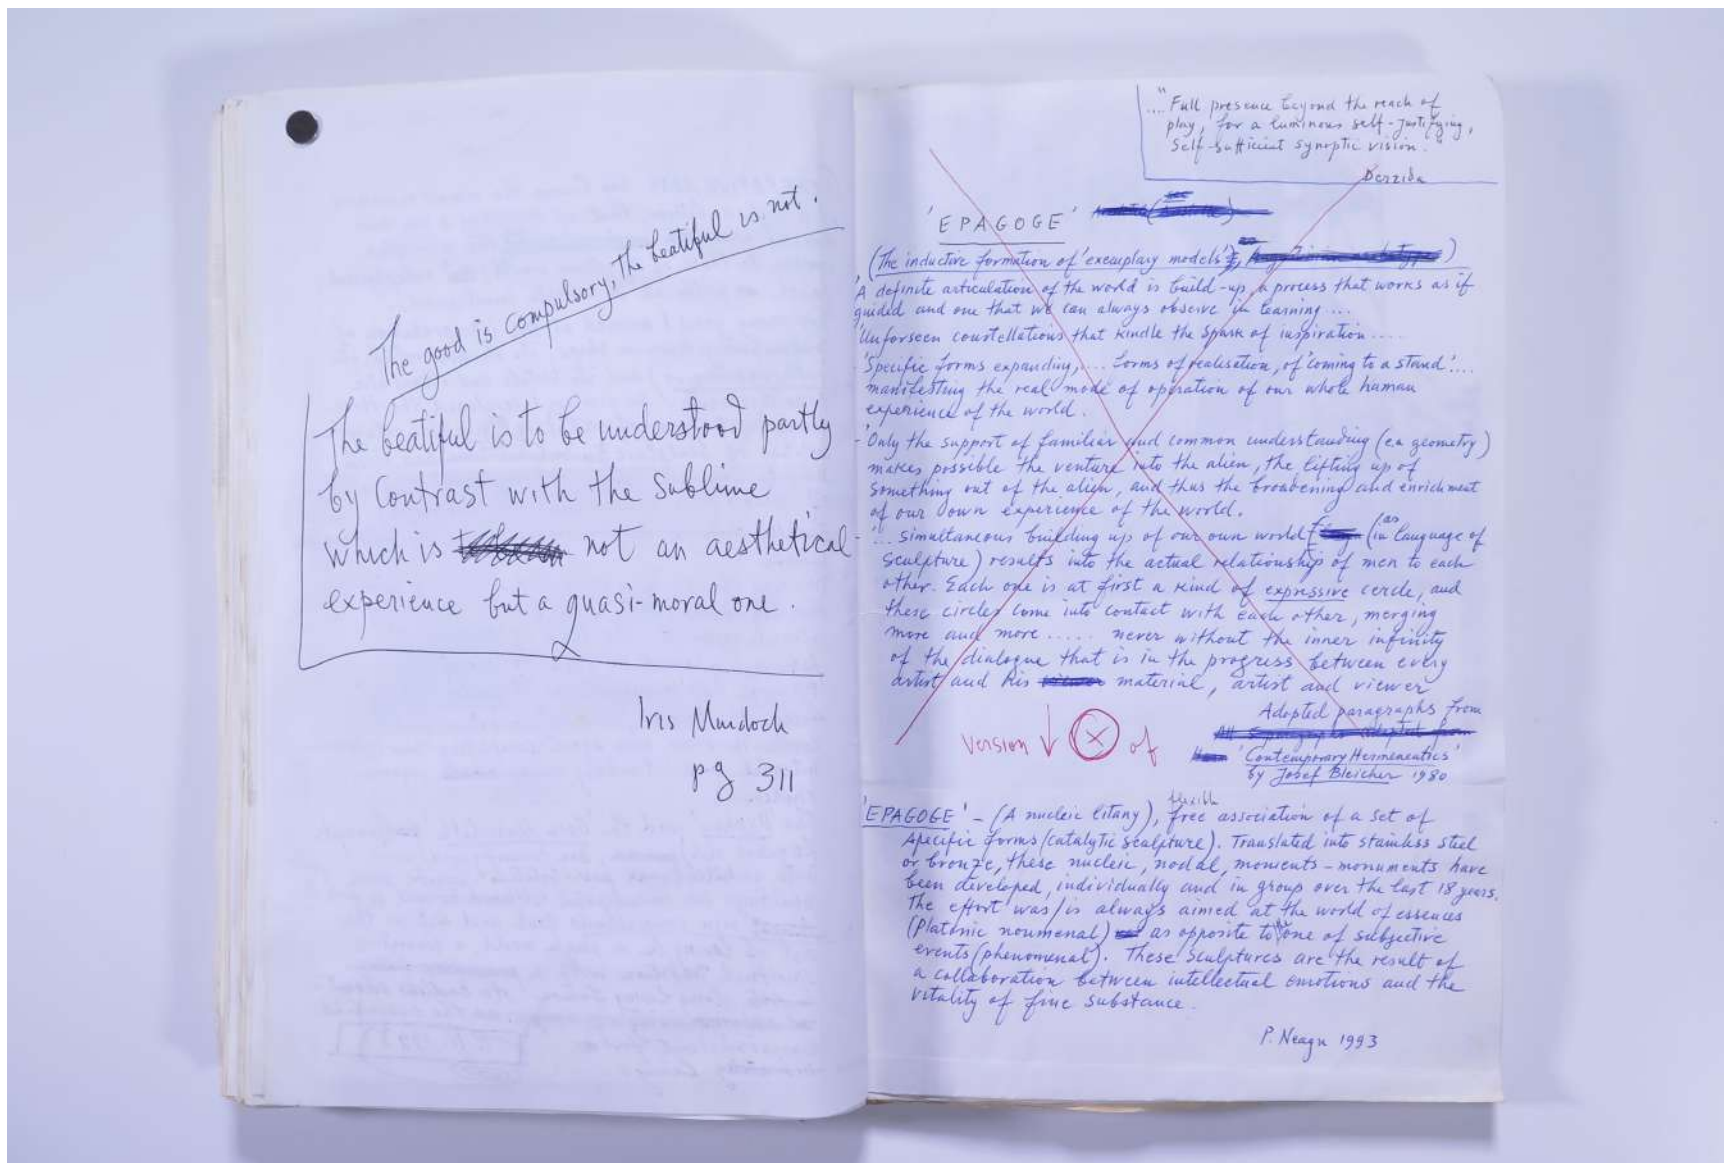 The good is compulsory, the beatiful is not.
The beatiful is to be understood partly
by contrast with the Sublime
which is not an aesthetical
experience but a quasi-moral one.
Iris Murdoch
pg 311
...."Full presence beyond the reach of
play, for a luminous self-justifying,
Self-sufficient synoptic vision."
Derrida
'EPAGOGE'
(The inductive formation of 'exemplary models')
'A definite articulation of the world is build-up, a process that works as if
guided and one that we can always observe in learning....
'Unforseen constellations that kindle the spark of inspiration.....
'Specific forms expanding,... forms of realisation, of 'coming to a stand'....
manifesting the real mode of operation of our whole human
experience of the world.
-'Only the support of familiar and common understanding (ex geometry)
makes possible the venture into the alien, the lifting up of
something out of the alien, and thus the broadening and enrichment
of our own experience of the world.
-'... simultaneous building up of our own world (as in language of
Sculpture) results into the actual relationship of men to each
other. Each one is at first a kind of expressive cercle, and
these circles come into contact with each other, merging
more and more..... never without the inner infinity
of the dialogue that is in the progress between every
artist and his material, artist and viewer
Adopted paragraphs from
'Contemporary Hermeneutics'
by Josef Bleicher 1980
Version ↓ X of
'EPAGOGE' - (A nucleic litany), flexible free association of a set of
specific forms (catalytic sculpture). Translated into stainless steel
or bronze, these nucleic, nodal, moments-monuments have
been developed, individually and in group over the last 18 years.
The effort was/is always aimed at the world of essences
(Platonic noumenal) as opposite to the one of subjective
events (phenomenal). These sculptures are the result of
a collaboration between intellectual emotions and the
vitality of fine substance.
P. Neagu 1993